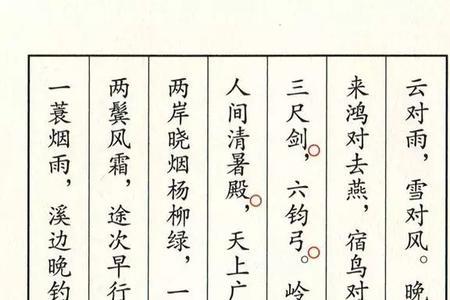 云对雨，雪对风。晚
来鸿对去燕，宿鸟对
三尺剑，六钧弓。岭
人间清暑殿，天上广
两岸晓烟杨柳绿，一
两鬓风霜，途次早行
一蓑烟雨，溪边晚钓